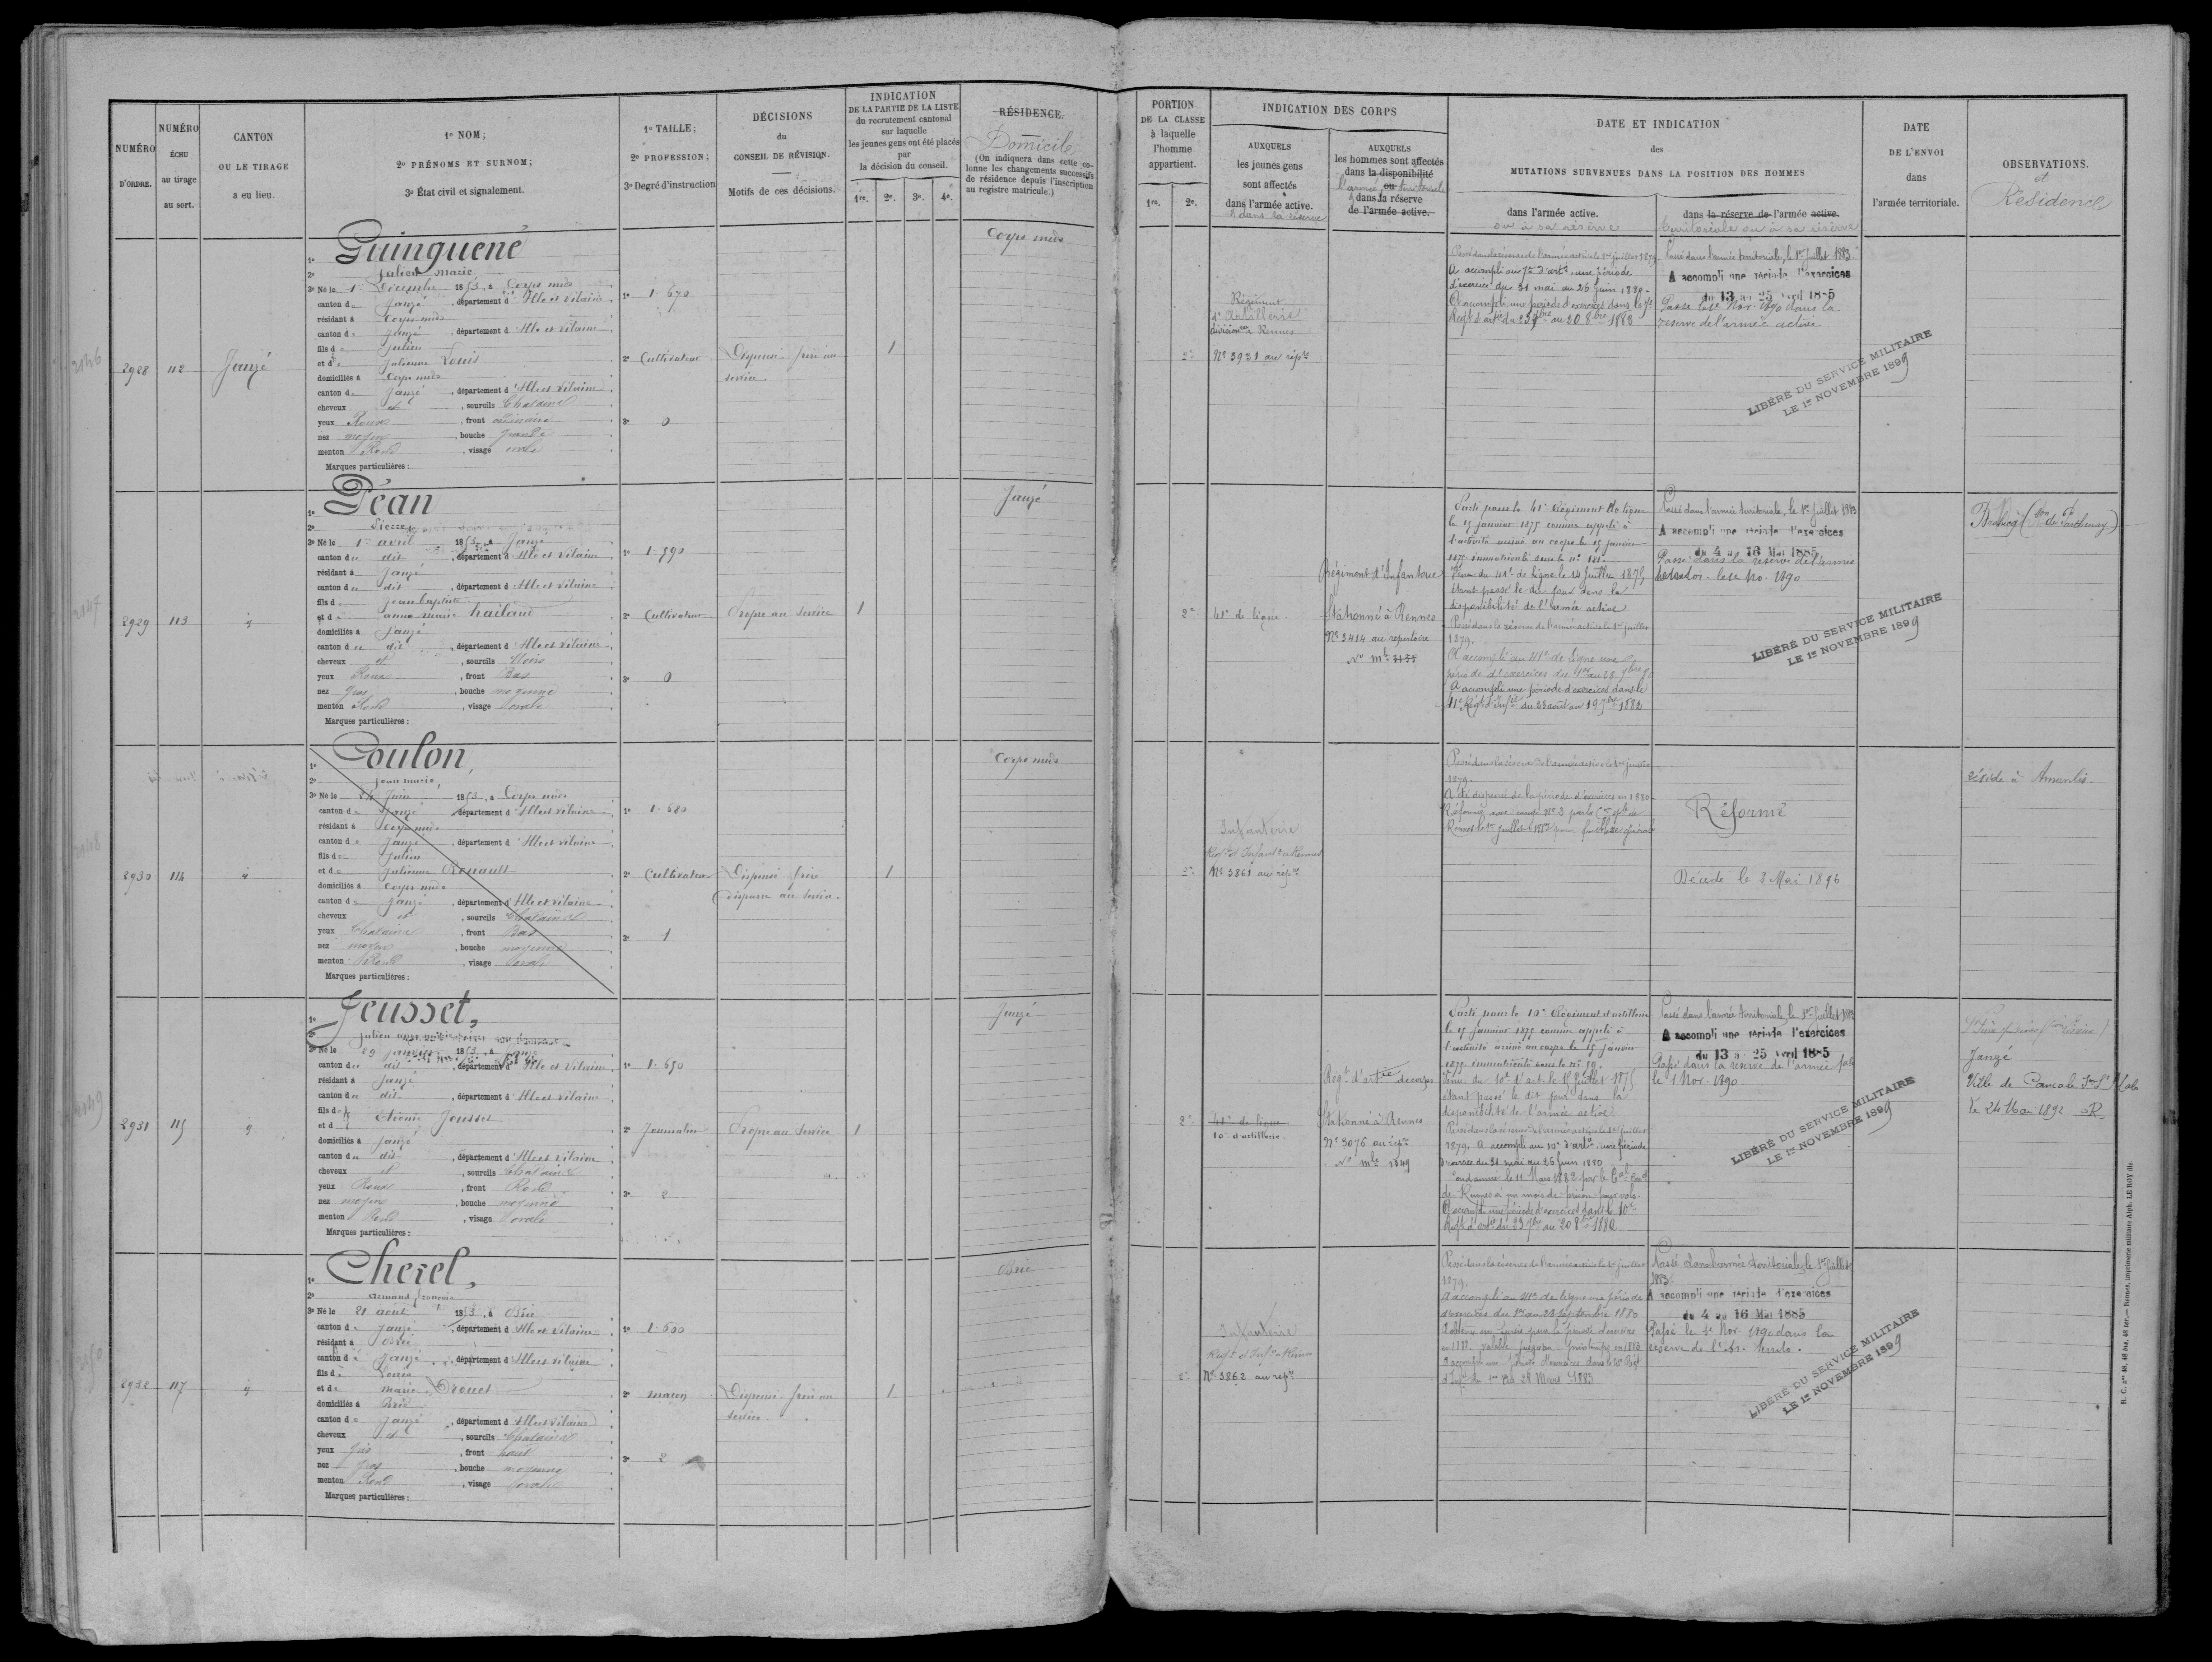 NUMÉRO
D'ORDRE.
NUMÉRO
ÉCHU
au tirage
au sort.
CANTON
OU LE TIRAGE
a eu lieu.
1º NOM;
2º PRÉNOMS ET SURNOM;
3º État civil et signalement.
1º TAILLE;
2º PROFESSION;
3º Degré d'instruction
DÉCISIONS
du
CONSEIL DE RÉVISION.
Motifs de ces décisions.
INDICATION
DE LA PARTIE DE LA LISTE
du recrutement cantonal
sur laquelle
les jeunes gens ont été placés
par
la décision du conseil.
1re. 2e. 3e. 4e.
RÉSIDENCE
Domicile
(On indiquera dans cette co-
lonne les changements successifs
de résidence depuis l'inscription
au registre matricule.)
2928
112
Janzé
1º Guinguené
2º Julien Marie
3º Né le 1er Décembre 1853, à Corps nuds
canton de Janzé, département d'Ille et Vilaine
résidant à Corps nuds
canton de Janzé, département d'Ille et Vilaine
fils de Julien
et de Julienne Louis
domiciliés à Corps nuds
canton de Janzé, département d'Ille et Vilaine
cheveux et, sourcils Chatains
yeux Roux, front ordinaire
nez moyen, bouche grande
menton Rond, visage ovale
Marques particulières :
1º 1.670
2º Cultivateur
3º 0
Dispensé frère au
service.
1
Corps nuds
2929
113
1º Déan
2º Pierre
3º Né le 1er avril 1853, à Janzé
canton du dit, département d'Ille et Vilaine
résidant à Janzé
canton du dit, département d'Ille et Vilaine
fils de Jean baptiste
et de anne marie
domiciliés à Janzé
canton du dit, département d'Ille et Vilaine
cheveux et, sourcils Noirs
yeux Roux, front Bas
nez gros, bouche moyenne
menton Rond, visage ovale
Marques particulières :
1º 1.590
2º Cultivateur
3º 0
Propre au Service
1
Janzé
2930
114
1º Coulon,
2º Jean marie
3º Né le 24 Juin 1853, à Corps nuds
canton de Janzé, département d'Ille et Vilaine
résidant à Corps nuds
canton de Janzé, département d'Ille et Vilaine
fils de Julien
et de Julienne Renault
domiciliés à Corps nuds
canton de Janzé, département d'Ille et Vilaine
cheveux et, sourcils Chatains
yeux Chatains, front Bas
nez moyen, bouche moyenne
menton Rond, visage ovale
Marques particulières :
1º 1.680
2º Cultivateur
3º 1
Dispensé frère
disparu au Service.
1
Corps nuds
2931
115
1º Jeusset,
2º Julien
3º Né le 29 janvier 1853, à Janzé
canton du dit, département d'Ille et Vilaine
résidant à Janzé
canton du dit, département d'Ille et Vilaine
fils de Etienne Jeusset
et d
domiciliés à Janzé
canton du dit, département d'Ille et Vilaine
cheveux et, sourcils Chatains
yeux Roux, front Rond
nez moyen, bouche moyenne
menton Rond, visage ovale
Marques particulières :
1º 1.650
2º Journalier
3º 2
Propre au Service
1
Janzé
2932
117
1º Cherel,
2º Armand François
3º Né le 21 août 1853, à Brie
canton de Janzé, département d'Ille et Vilaine
résidant à Brie
canton de Janzé, département d'Ille et Vilaine
fils de Louis
et de marie Drouet
domiciliés à Brie
canton de Janzé, département d'Ille et Vilaine
cheveux et, sourcils Chatains
yeux gris, front haut
nez gros, bouche moyenne
menton Rond, visage ovale
Marques particulières :
2º maçon
3º 2
Dispensé frère au
service.
1
Brie
PORTION
DE LA CLASSE
à laquelle
l'homme
appartient.
1re. 2e.
INDICATION DES CORPS
AUXQUELS
les jeunes gens
sont affectés
dans l'armée active.
& dans la réserve
AUXQUELS
les hommes sont affectés
dans la disponibilité
ou
l'armée territoriale
& dans la réserve
de l'armée active.
DATE ET INDICATION
des
MUTATIONS SURVENUES DANS LA POSITION DES HOMMES
dans l'armée active.
ou à sa réserve
dans la réserve de l'armée active.
territoriale ou à sa réserve
DATE
DE L'ENVOI
dans
l'armée territoriale.
OBSERVATIONS.
et
Résidence
2e
Régiment
d'Artillerie
divisionre à Rennes
Nº 3931 au répre
Passé dans la réserve de l'armée active le 1er juillet 1879.
A accompli au 7e d'artie une période
d'exercice du 31 mai au 26 Juin 1880.
A accompli une période d'exercices dans le 7e
Regt d'artie du 23 7bre au 20 8bre 1883
Passé dans l'armée territoriale, le 1er Juillet 1883
A accompli une période d'exercices
du 13 au 25 avril 1885
Passé le 1er Nov. 1890 dans la
reserve de l'armée active
LIBÉRÉ DU SERVICE MILITAIRE
LE 1er NOVEMBRE 1899
2e
41e de ligne
Régiment d'Infanterie
Stationné à Rennes
Nº 3414 au répertoire
Parti pour le 41e Régiment de ligne
le 15 janvier 1875 comme appelé à
l'activité arrivé au corps le 15 janvier
1875 immatriculé sous le nº
Venu du 41e de Ligne le 14 Juillet 1875
étant passé le dit jour dans la
disponibilité de l'armée active
Passé dans la réserve de l'armée active le 1er juillet
1879.
A accompli au 41e de ligne une
période d'exercices du 1er au 28 7bre 80
A accompli une période d'exercices dans le
41e Régt d'Infie du 23 août au 19 7bre 1882
Passé dans l'armée territoriale, le 1er Juillet 1883
A accompli une période d'exercices
du 4 au 16 Mai 1885
Passé dans la réserve de l'armée
le 1er No. 1890
LIBÉRÉ DU SERVICE MILITAIRE
LE 1er NOVEMBRE 1899
2e
Infanterie
Regt d'Infanie à Rennes
Nº 3861 au répre
Passé dans la réserve de l'armée active le 1er juillet
1879.
A été dispensé de la période d'exercices en 1880.
Réformé
Décédé le 2 Mai 1896
réside à Amanlis
2e
41e de ligne
10e d'artillerie
Régt d'artie de corps
Stationné à Rennes
Nº 3076 au répre
Nº mle 1349
Parti pour le 10e Régiment d'artillerie
le 15 janvier 1875 comme appelé à
l'activité arrivé au corps le 15 janvier
1875 immatriculé sous le nº
Venu du 10e d'artie le 15 Juillet 1875
étant passé le dit jour dans la
disponibilité de l'armée active
Passé dans la réserve de l'armée active le 1er juillet
1879. A accompli au 10e d'artie une période
d'exercice du 31 mai au 26 Juin 1880
Condamné le 11 Mars 1882 par le
de Rennes à un mois de prison pour vol.
A accompli une période d'exercices dans le 10e
Regt d'artie du 23 7bre au 20 8bre
Passé dans l'armée territoriale, le 1er Juillet 1883
A accompli une période d'exercices
du 13 au 25 avril 1885
Passé dans la réserve de l'armée
le 1 Nov. 1890
LIBÉRÉ DU SERVICE MILITAIRE
LE 1er NOVEMBRE 1899
Janzé
Ville de Cancale
Le 24 Mai 1892
Infanterie
Regt d'Infie à Rennes
Nº 3862 au répre
Passé dans la réserve de l'armée active le 1er juillet
1879.
A accompli au 41e de ligne une période
d'exercices du 1er au 28 Septembre 1880
d'Infie du 1er au 28 Mars 1883
Passé dans l'armée territoriale, le 1er Juillet
1883
A accompli une période d'exercices
du 4 au 16 Mai 1885
Passé le 1er Nov. 1890 dans la
réserve de l'Ar. Territo.
LIBÉRÉ DU SERVICE MILITAIRE
LE 1er NOVEMBRE 1899